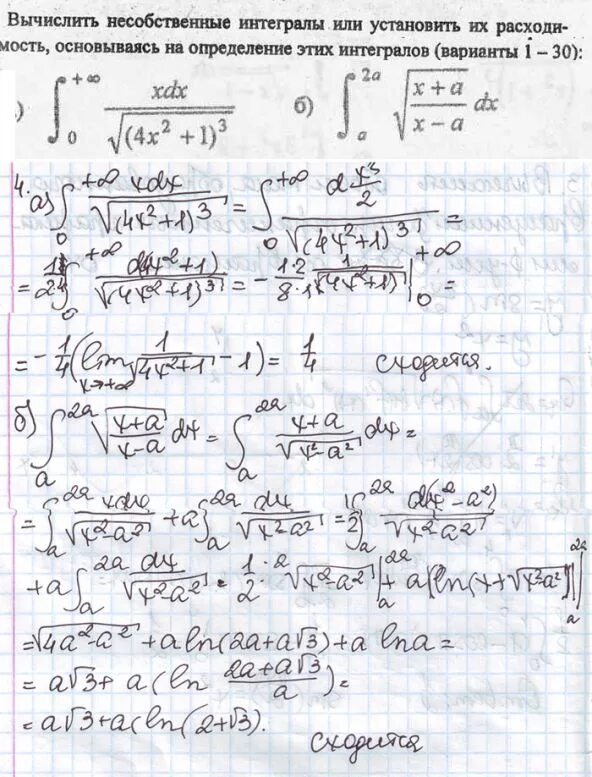 Вычислить несобственные интегралы или установить их расходи-
мость, основываясь на определение этих интегралов (варианты 1 – 30):
) ∫_0^{+∞} xdx/√((4x²+1)³) б) ∫_a^{2a} √((x+a)/(x−a)) dx
4. а) ∫_0^{+∞} xdx/√((4x²+1)³) = ∫_0^{+∞} d x²/2 /√((4x²+1)³) =
= ∫_0^{+∞} d(4x²+1)/√((4x²+1)³) = −(1·2)/(8·1) 1/√(4x²+1) |_0^{+∞} =
= −1/4 (lim_{x→+∞} 1/√(4x²+1) − 1) = 1/4 сходится.
б) ∫_a^{2a} √((x+a)/(x−a)) dx = ∫_a^{2a} (x+a)/√(x²−a²) dx =
= ∫_a^{2a} xdx/√(x²−a²) + a∫_a^{2a} dx/√(x²−a²) = 1/2 ∫_a^{2a} d(x²−a²)/√(x²−a²)
+ a∫_a^{2a} dx/√(x²−a²) = 1/2 · 2 √(x²−a²) |_a^{2a} + a[ln(x+√(x²−a²)]|_a^{2a}
= √(4a²−a²) + a ln(2a+a√3) + a ln a =
= a√3 + a (ln (2a+a√3)/a) =
= a√3 + a(ln(2+√3).
сходится